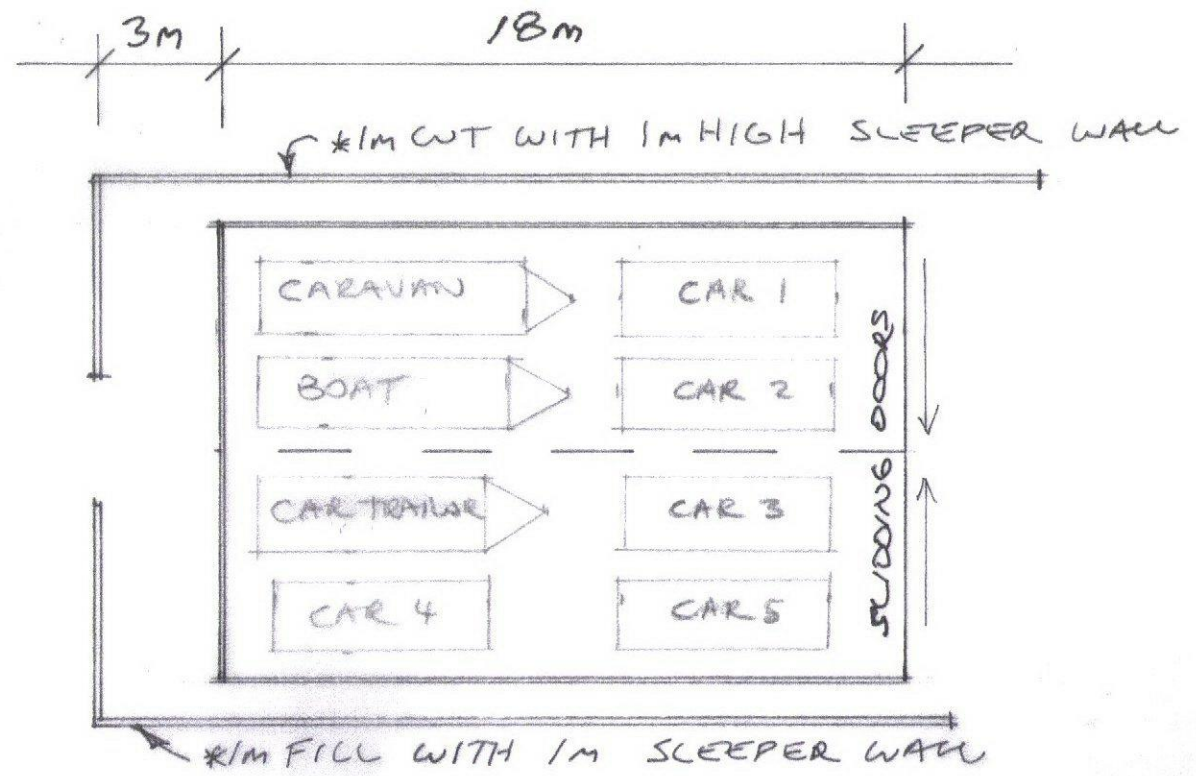 3m 18m
*1m CUT WITH 1m HIGH SLEEPER WALL
CARAVAN CAR 1
BOAT CAR 2
CAR TRAILOR CAR 3
CAR 4 CAR 5
SLIDDING DOORS
*1m FILL WITH 1m SLEEPER WALL